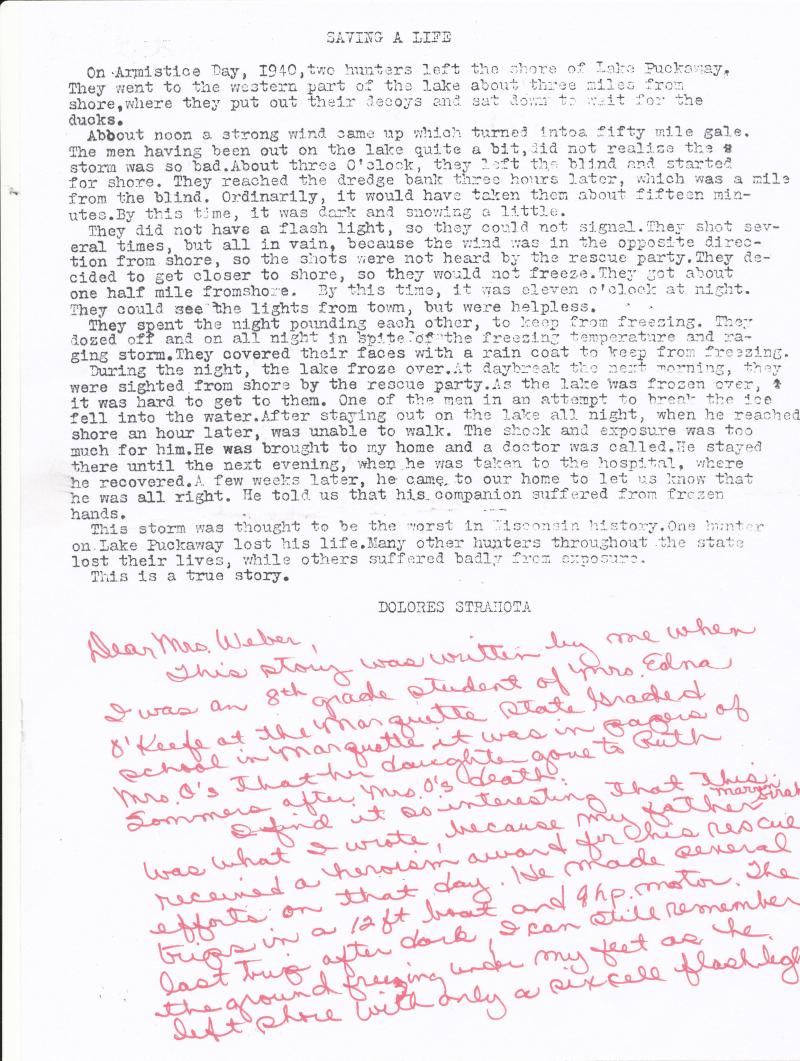 SAVING A LIFE
On Armistice Day, 1940,two hunters left the shore of Lake Puckaway.
They went to the western part of the lake about three miles from
shore,where they put out their decoys and sat down to wait for the
ducks.
Abbout noon a strong wind came up which turned intoa fifty mile gale.
The men having been out on the lake quite a bit,did not realize the
storm was so bad.About three O'clock, they left the blind and started
for shore. They reached the dredge bank three hours later, which was a mile
from the blind. Ordinarily, it would have taken them about fifteen min-
utes.By this time, it was dark and snowing a little.
They did not have a flash light, so they could not signal.They shot sev-
eral times, but all in vain, because the wind was in the opposite direc-
tion from shore, so the shots were not heard by the rescue party.They de-
cided to get closer to shore, so they would not freeze.They got about
one half mile fromshore. By this time, it was eleven o'clock at night.
They could see the lights from town, but were helpless.
They spent the night pounding each other, to keep from freezing. They
dozed off and on all night in spite of the freezing temperature and ra-
ging storm.They covered their faces with a rain coat to keep from freezing.
During the night, the lake froze over.At daybreak the next morning, they
were sighted from shore by the rescue party.As the lake was frozen over,
it was hard to get to them. One of the men in an attempt to break the ice
fell into the water.After staying out on the lake all night, when he reached
shore an hour later, was unable to walk. The shock and exposure was too
much for him.He was brought to my home and a doctor was called.He stayed
there until the next evening, when he was taken to the hospital, where
he recovered.A few weeks later, he came to our home to let us know that
he was all right. He told us that his companion suffered from frozen
hands.
This storm was thought to be the worst in Wisconsin history.One hunter
on Lake Puckaway lost his life.Many other hunters throughout the state
lost their lives, while others suffered badly from exposure.
This is a true story.
DOLORES STRAHOTA
Dear Mrs. Weber,
This story was written by me when
I was an 8th grade student of Mrs. Edna
O'Keefe at the Marquette State Graded
school in Marquette it was in papers of
Mrs. O's that her daughter gave to Ruth
Sommers after Mrs. O's death.
I find it so interesting that this
was what I wrote, because my father
received a heroism award for his rescue
efforts on that day. He made several
trips in a 12 ft boat and 9 hp. motor. The
last trip after dark, I can still remember
the ground freezing under my feet as he
left shore with only a six cell flashligh